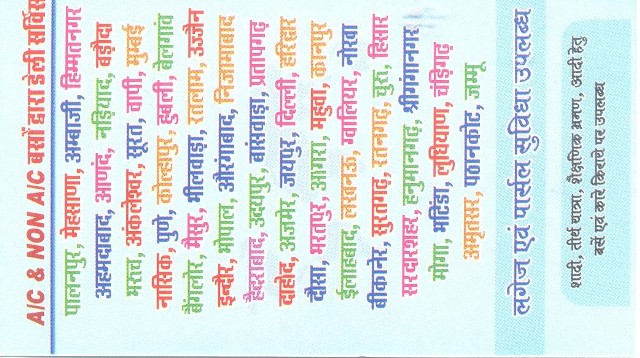 A/C & NON A/C बसों द्वारा डेली सर्विस
पालनपुर, मेहसाणा, अम्बाजी, हिम्मतनगर
अहमदाबाद, आणंद, नडियाद, बड़ौदा
भरुच, अंकलेश्वर, सूरत, वापी, मुम्बई
नासिक, पुणे, कोल्हापुर, हुबली, बेलगांव
बैंगलोर, मैसुर, भीलवाड़ा, रतलाम, उज्जैन
इन्दौर, भोपाल, औरंगाबाद, निजामाबाद
हैदराबाद, उदयपुर, बांसवाड़ा, प्रतापगढ़
दाहोद, अजमेर, जयपुर, दिल्ली, हरिद्वार
दीसा, भरतपुर, आगरा, महुवा, कानपुर
ईलाहबाद, लखनऊ, ग्वालियर, नोखा
बीकानेर, सुरतगढ़, रतनगढ़, चुरु, हिसार
सरदारशहर, हनुमानगढ़, श्रीगंगानगर
मोगा, भटिंडा, लुधियाण, चंड़िगढ़
अमृतसर, पठानकोट, जम्मू
लगेज एवं पार्सल सुविधा उपलब्ध
शादी, तीर्थ यात्रा, शैक्षणिक भ्रमण, आदी हेतु
बसें एवं कारें किराये पर उपलब्ध